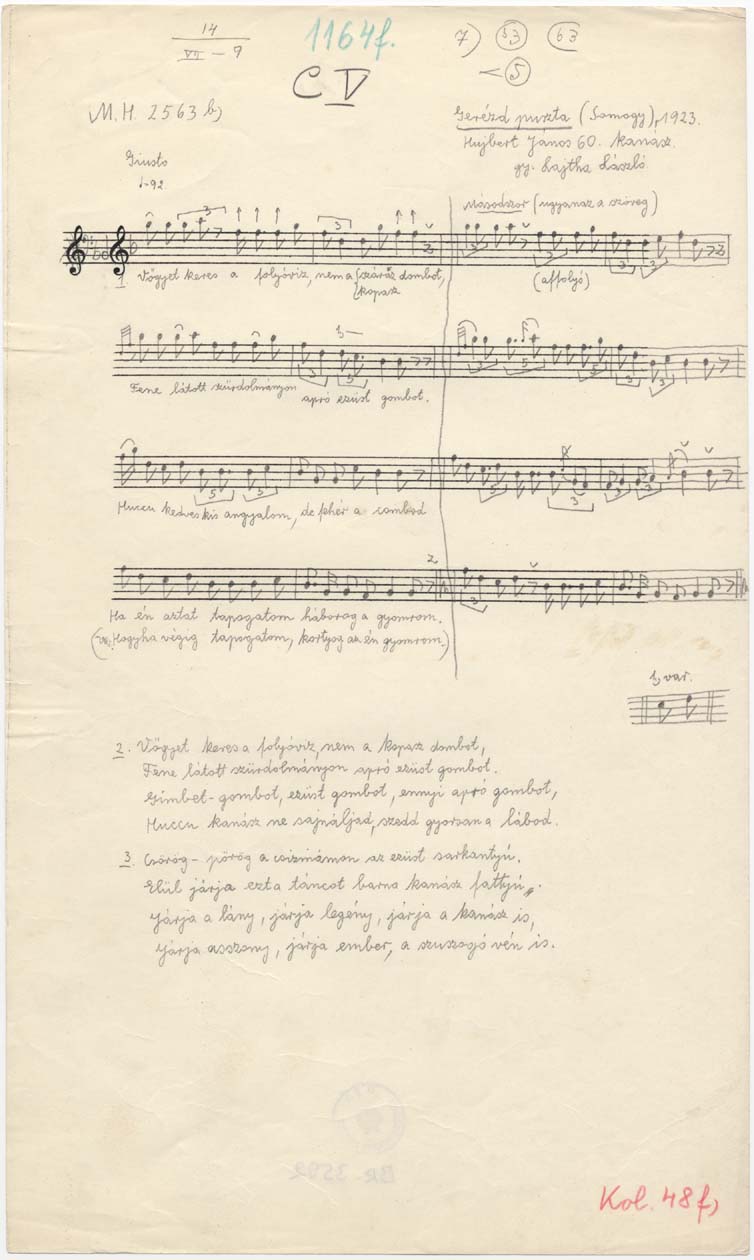 14
VII – 9
1164f.
7) 53 63
< 5
C V
M.H. 2563 b)
Gerézd puszta (Somogy), 1923.
Hujbert János 60. kanász.
gy. Lajtha László.
Giusto
♩=92
Másodszor (ugyanaz a szöveg)
1. Vögyet keres a folyóviz, nem a {száraz dombot,
{kopasz
(affolyó)
Fene látott szürdolmányon apró ezüst gombot.
Huccu kedves kis angyalom, de fehér a combod
Ha én aztat tapogatom háborog a gyomrom.
(Var. Hogyha végig tapogatom, kortyog az én gyomrom.)
1, var.
2. Vögyet keres a folyóviz, nem a kopasz dombot,
Fene látott szürdolmányon apró ezüst gombot.
Gimbet-gombot, ezüst gombot, ennyi apró gombot,
Huccu kanász ne sajnáljad, szedd gyorsan a lábod.
3. Csörög-pörög a csizmámon az ezüst sarkantyú.
Elül járja ezt a táncot barna kanász fattyú.
Járja a lány, járja legény, járja a kanász is,
Járja asszony, járja ember, a szuszogó vén is.
Kol. 48f)